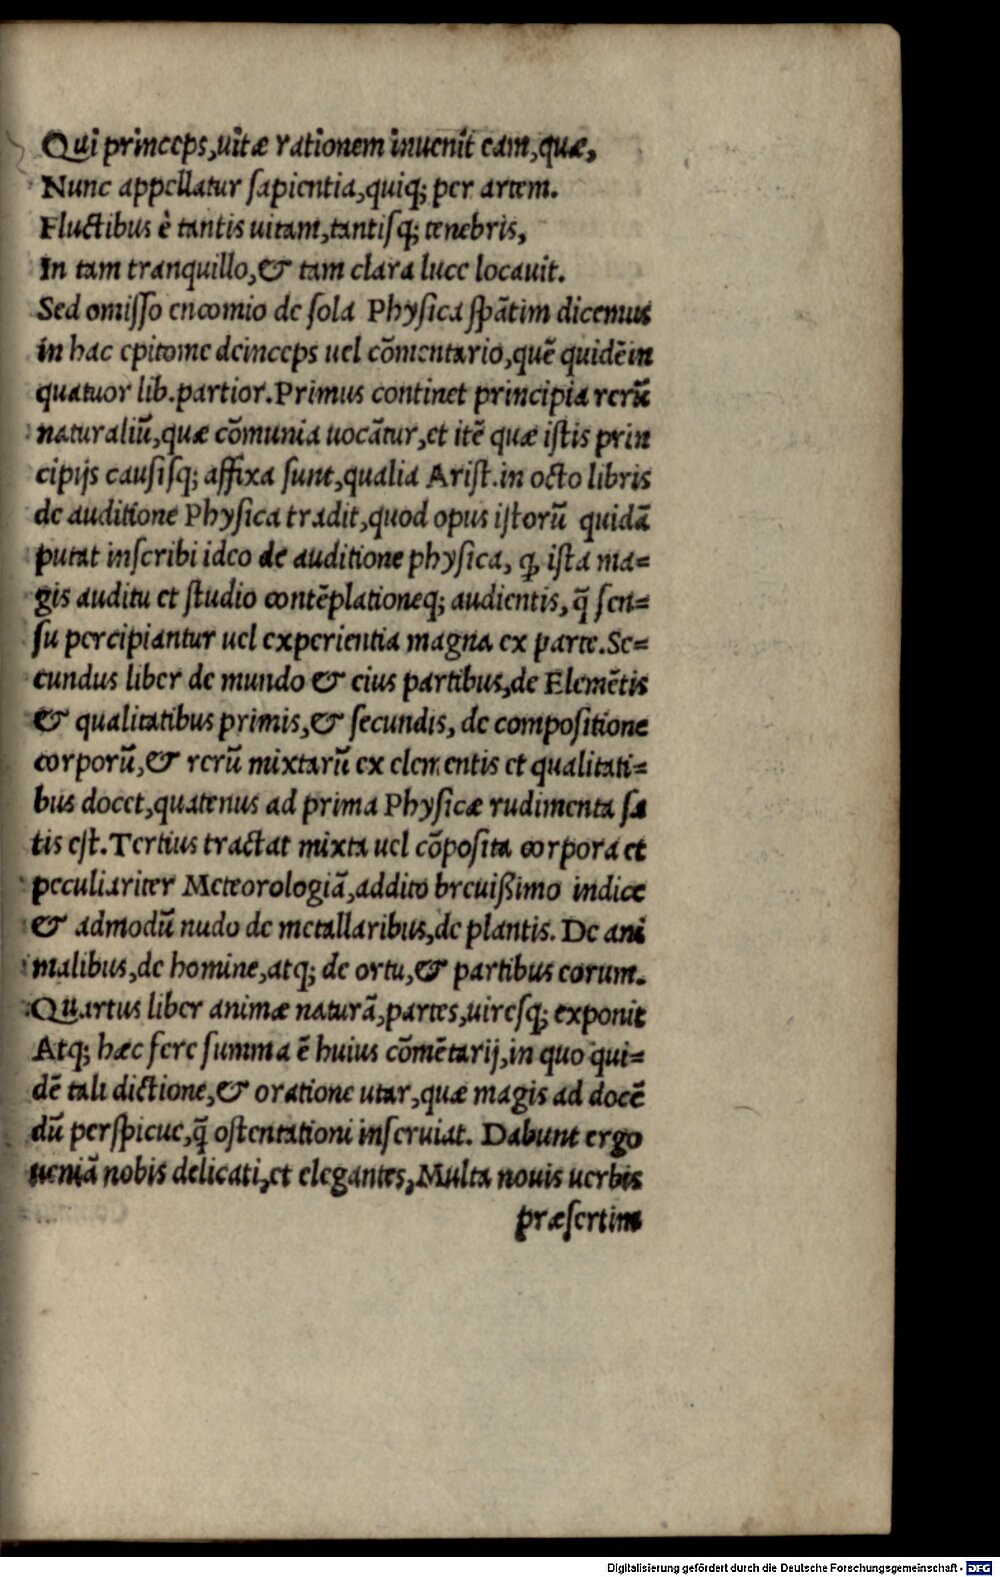 Qui princeps,uitæ rationem inuenit eam,quæ,
Nunc appellatur ſapientia,quiq; per artem.
Fluctibus è tantis uitam,tantiſq; tenebris,
In tam tranquillo,& tam clara luce locauit.
Sed omiſſo encomio de ſola Phyſica ſpãtim dicemus
in hac epitome deinceps uel cõmentario,quẽ quidẽ in
quatuor lib.partior.Primus continet principia rerũ
naturaliũ,quæ cõmunia uocãtur,et itẽ quæ iſtis prin
cipijs cauſiſq; affixa ſunt,qualia Ariſt.in octo libris
de auditione Phyſica tradit,quod opus iſtorũ quidã
putat inſcribi ideo de auditione phyſica, ꝙ iſta ma=
gis auditu et ſtudio contẽplationeq; audientis, q̃ ſen=
ſu percipiantur uel experientia magna ex parte.Se=
cundus liber de mundo & eius partibus,de Elemẽtis
& qualitatibus primis,& ſecundis, de compoſitione
corporũ,& rerũ mixtarũ ex elementis et qualitati=
bus docet,quatenus ad prima Phyſicæ rudimenta ſa
tis eſt.Tertius tractat mixta uel cõpoſita corpora et
peculiariter Meteorologiã,addito breuißimo indice
& admodũ nudo de metallaribus,de plantis. De ani
malibus,de homine,atq; de ortu,& partibus eorum.
Quartus liber animæ naturã,partes,uireſq; exponit
Atq; hæc fere ſumma ẽ huius cõmẽtarij,in quo qui=
dẽ tali dictione,& oratione utar,quæ magis ad docẽ
dũ perſpicue,q̃ oſtentationi inſeruiat. Dabunt ergo
ueniã nobis delicati,et elegantes,Multa nouis uerbis
præſertim
Digitalisierung gefördert durch die Deutsche Forschungsgemeinschaft - DFG